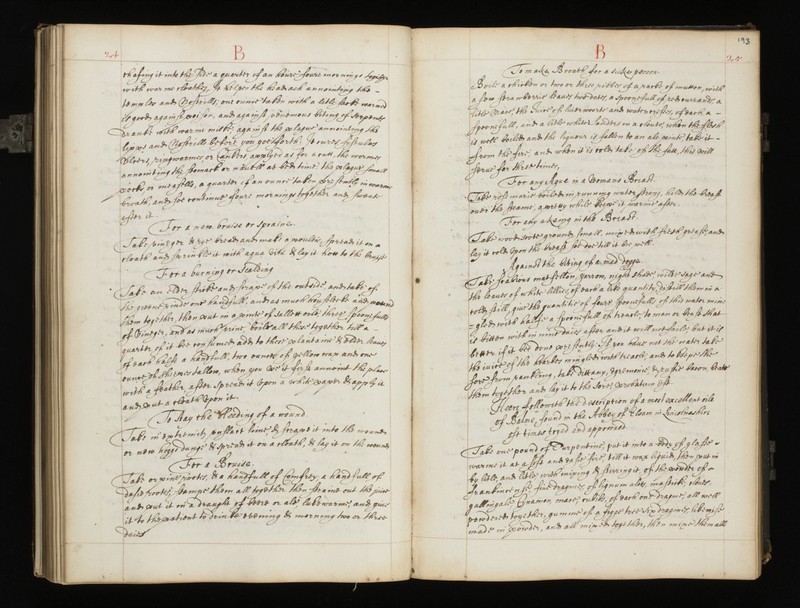 24
B
chafing it into the sides a quarter of an houre foure mornings together
with warme cloathes. It helpes the headach annointing the
temples and Nosthrills, one ounce taken with a little sacke warmd
is good against poison, and against venemous biting of serpents
dranke with warme milke against the plague annointing the
lipps and Nosthrills before you goe forth. It cures fistulas
Ulcers, ringwormes, or Cankers applyed as for a cutt. the wormes
annointing the stomack or navell at bed time. the plague small
pocks, or measells, a quarter of an ounce taken presently in warme
broath, and soe continue foure mornings together and sweat
after it.
For a new bruise or spraine.
Take vineger & rye bread and make a poultis, spread it on a
cloath and sprinkle it with aqua vitæ & lay it hott to the bruise
For a burning or Scalding
Take an elder sticke and scrape of the outside, and take of
the greene rinde one handfull, and as much housleeke and pound
them together, then put in a pinte of sallett oile, three spoonefulls
of vineger, and as much urine, boile all these together till a
quarter of it bee consumed, adde to these plantaine & elder leaves
of each halfe a handfull, two ounces of yellow wax and one
ounce of sheepes tallow, when you use it first annoint the place
with a feather, after spread it upon a white paper & apply it
and put a cloath upon it.
To stay the bleeding of a wound
Take in extremity unslact lime & strawe it into the wound
or new hoggs dunge & spread it on a cloath, & lay it on the wound
For a Bruise.
Take or pine rootes, & a handfull of Comfrey a handfull of
dasie rootes, stampe them all together then straine out the juice
and put it in a draught of beere or ale lukewarme, and give
it to the patient to drinke evening & morning two or three
daies
193
B
25
To make Broath for a sicke person
Boile a chicken or two or three pibles of a necke of mutton, with
a few strawberrie leaves two dates, a spoonefull of red currants, a
little Mace, the Juice of liverworte and watercresses, of each a
spoonefull, and a little white saunders in a cloute, when the flesh
is well boiled and the liquour is fallen to an ale pinte, take it
from the fire, and when it is cold take of the fatt, this will
serve for three times,
For any Ague in a Womans Breast
Take rose marie boiled in running water strong, hold the breast
over the steame, a pretty while keepe it warme after.
For any akeing in the Breast.
Take wood sorte ground small, mixed with fresh grease, and
lay it cold upon the breast soe doe till it be well.
Against the biting of a mad dogge.
Take scabious matfellon, yarrow, night shade, wilde sage and
the leaves of white lillies, of each a like quantity distill them in a
cold still, give the quantitie of foure spoonefulls of this water min
gled with halfe a spoonefull of treacle, to man or beast that
is bitten within nine daies after and it will not faile, but it is
better if it bee done presently. If you have not the water take
the juice of the hearbes mingled with treacle, and to keepe the
sore from rankling, take dittany, egremonie, & rustie bacon beate
them together and lay it to the sore. probatum est.
Heere followeth the description of a most excellent oile
of Balme, found in the Abbey of Elsam in Lincolnshire
oft times tryed and approoved.
Take one pound of Turpentine, put it into a body of glasse
warme it at a soft and easie fire till it wax liquid, then put in
by little and little with mixing & stirring it, of the powder of
Frankincense six dragmes, of lignum aloes, masticke, cloves,
gallingall, Cynamon, mace, cubibs, of each one dragme, all well
powdered together, gumme of a figge tree six dragmes, likewise
made in powder, and all mixed together, then mixe them all